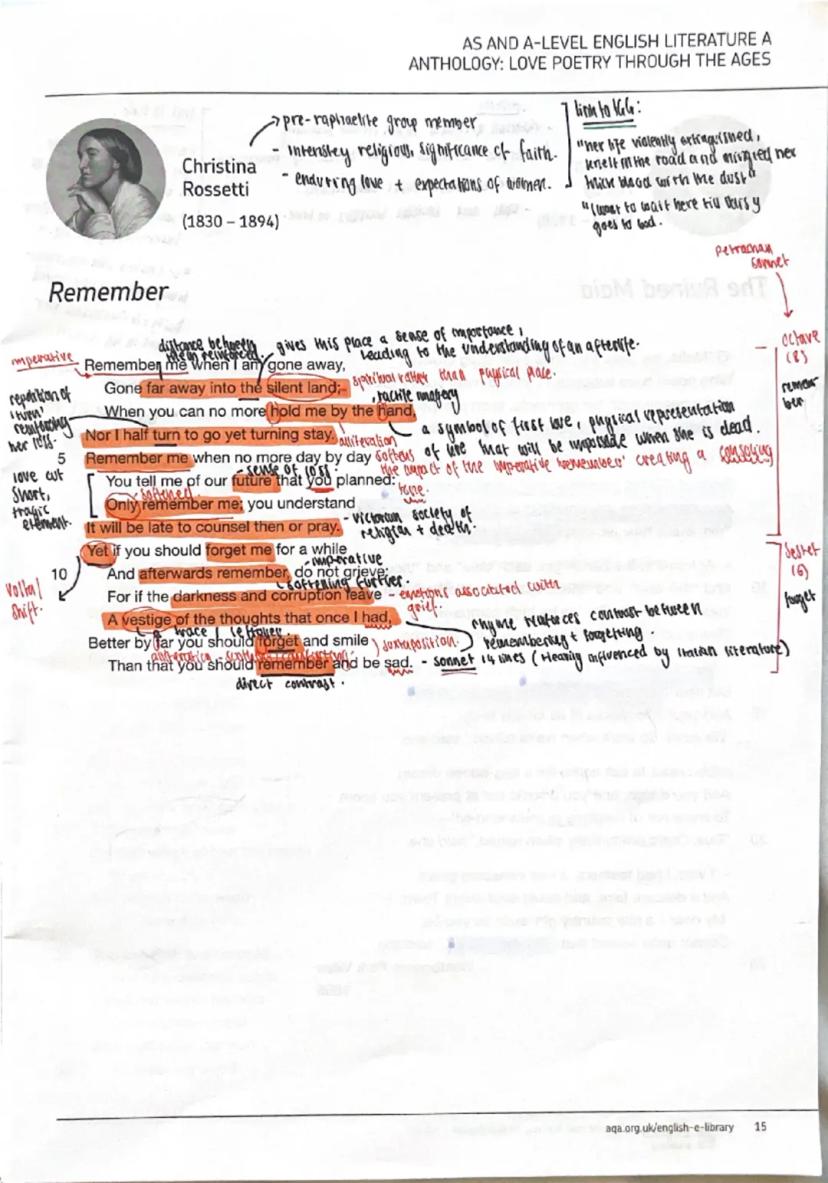 AS AND A-LEVEL ENGLISH LITERATURE A
ANTHOLOGY: LOVE POETRY THROUGH THE AGES
pre-raphaelite group member
- intensley religious, significance of faith.
- enduring love + expectations of women.
link to TGG:
"her life violently extinguished,
knelt in the road and mingled her
thick blood with the dust"
"I want to wait here till Daisy
goes to bed.
Christina
Rossetti
(1830 – 1894)
Petrarchan
sonnet
Remember
distance between
them reinforced.
gives this place a sense of importance,
leading to the understanding of an afterlife.
imperative
Remember me when I am gone away,
octave
(8)
remember
Gone far away into the silent land;
spiritual rather than physical place.
repetition of
'turn'
reinforcing
her loss.
tactile imagery
When you can no more hold me by the hand,
a symbol of first love, physical representation
of love that will be impossible when she is dead.
Nor I half turn to go yet turning stay.
alliteration
5 Remember me when no more day by day
softens
the impact of the imperative 'remember' creating a consoling
tone.
love cut
short,
tragic
element.
sense of loss.
You tell me of our future that you planned:
softened
Only remember me; you understand
It will be late to counsel then or pray.
- Victorian society of
religion + death.
Yet if you should forget me for a while
sestet
(6)
forget
Volta/
shift.
imperative
10 And afterwards remember, do not grieve:
softening further.
For if the darkness and corruption leave
- emotions associated with
grief.
A vestige of the thoughts that once I had,
a trace / leftover.
rhyme reinforces contrast between
remembering + forgetting.
Better by far you should forget and smile
juxtaposition.
Than that you should remember and be sad.
- sonnet 14 lines (Heavily influenced by Italian literature)
direct contrast.
aqa.org.uk/english-e-library 15